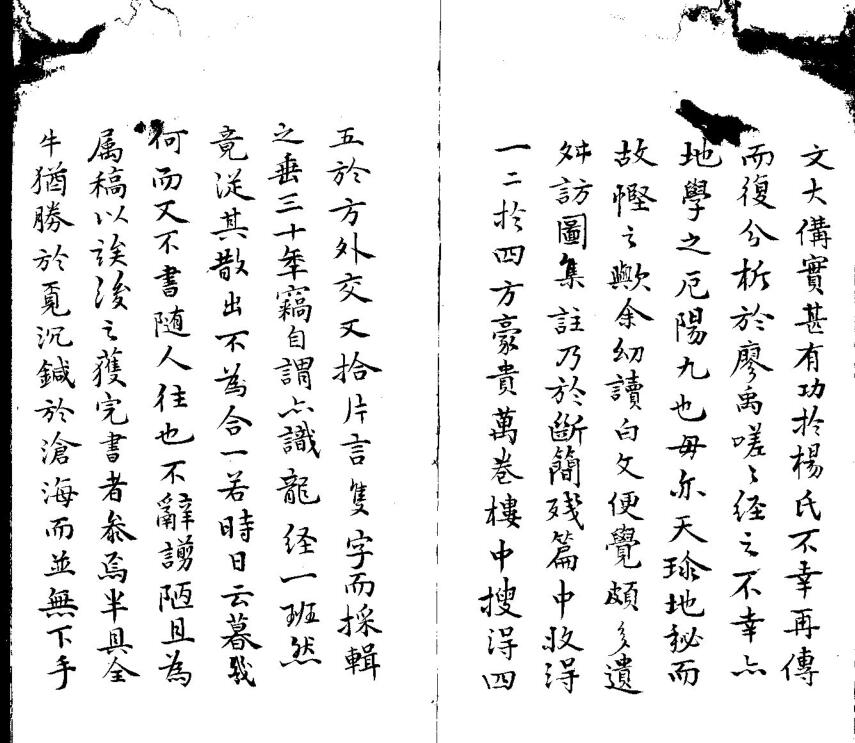 文大備實甚有功扵楊氏不幸再傳
而復分析於廖禹嗟〻経之不幸亦
地學之厄陽九也毋亦天珍地秘而
故慳之歟余幼讀白文便覺頗多遺
舛訪圖集註乃於斷簡残篇中收得
一二扵四方豪貴萬卷樓中搜淂四
五於方外交又拾片言隻字而採輯
之垂三十年竊自謂亦識龍経一班然
竟従其散出不為合一若時日云暮幾
何而又不書随人往也不辭謭陋且為
属稿以俟後之獲完書者叅焉半具全
牛猶勝於覔沉鍼於滄海而並無下手